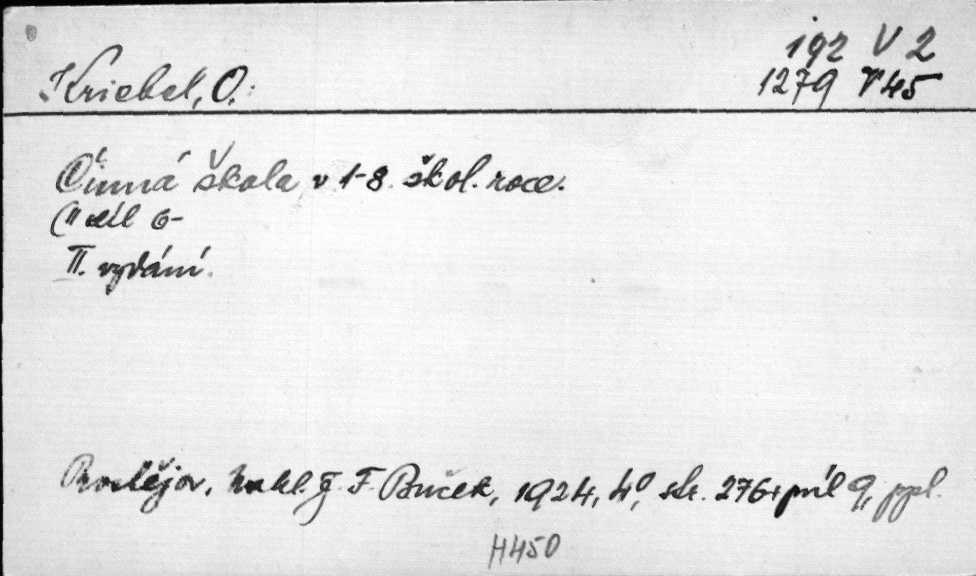 192 V 2
Kriebel, O.:
1279 V 45
Činná škola v 1-8. škol. roce.
(II díl 6-
II. vydání.
Prostějov, Nakl. J. F. Buček, 1924, 4°, str. 276+příl 9, ppl.
H450